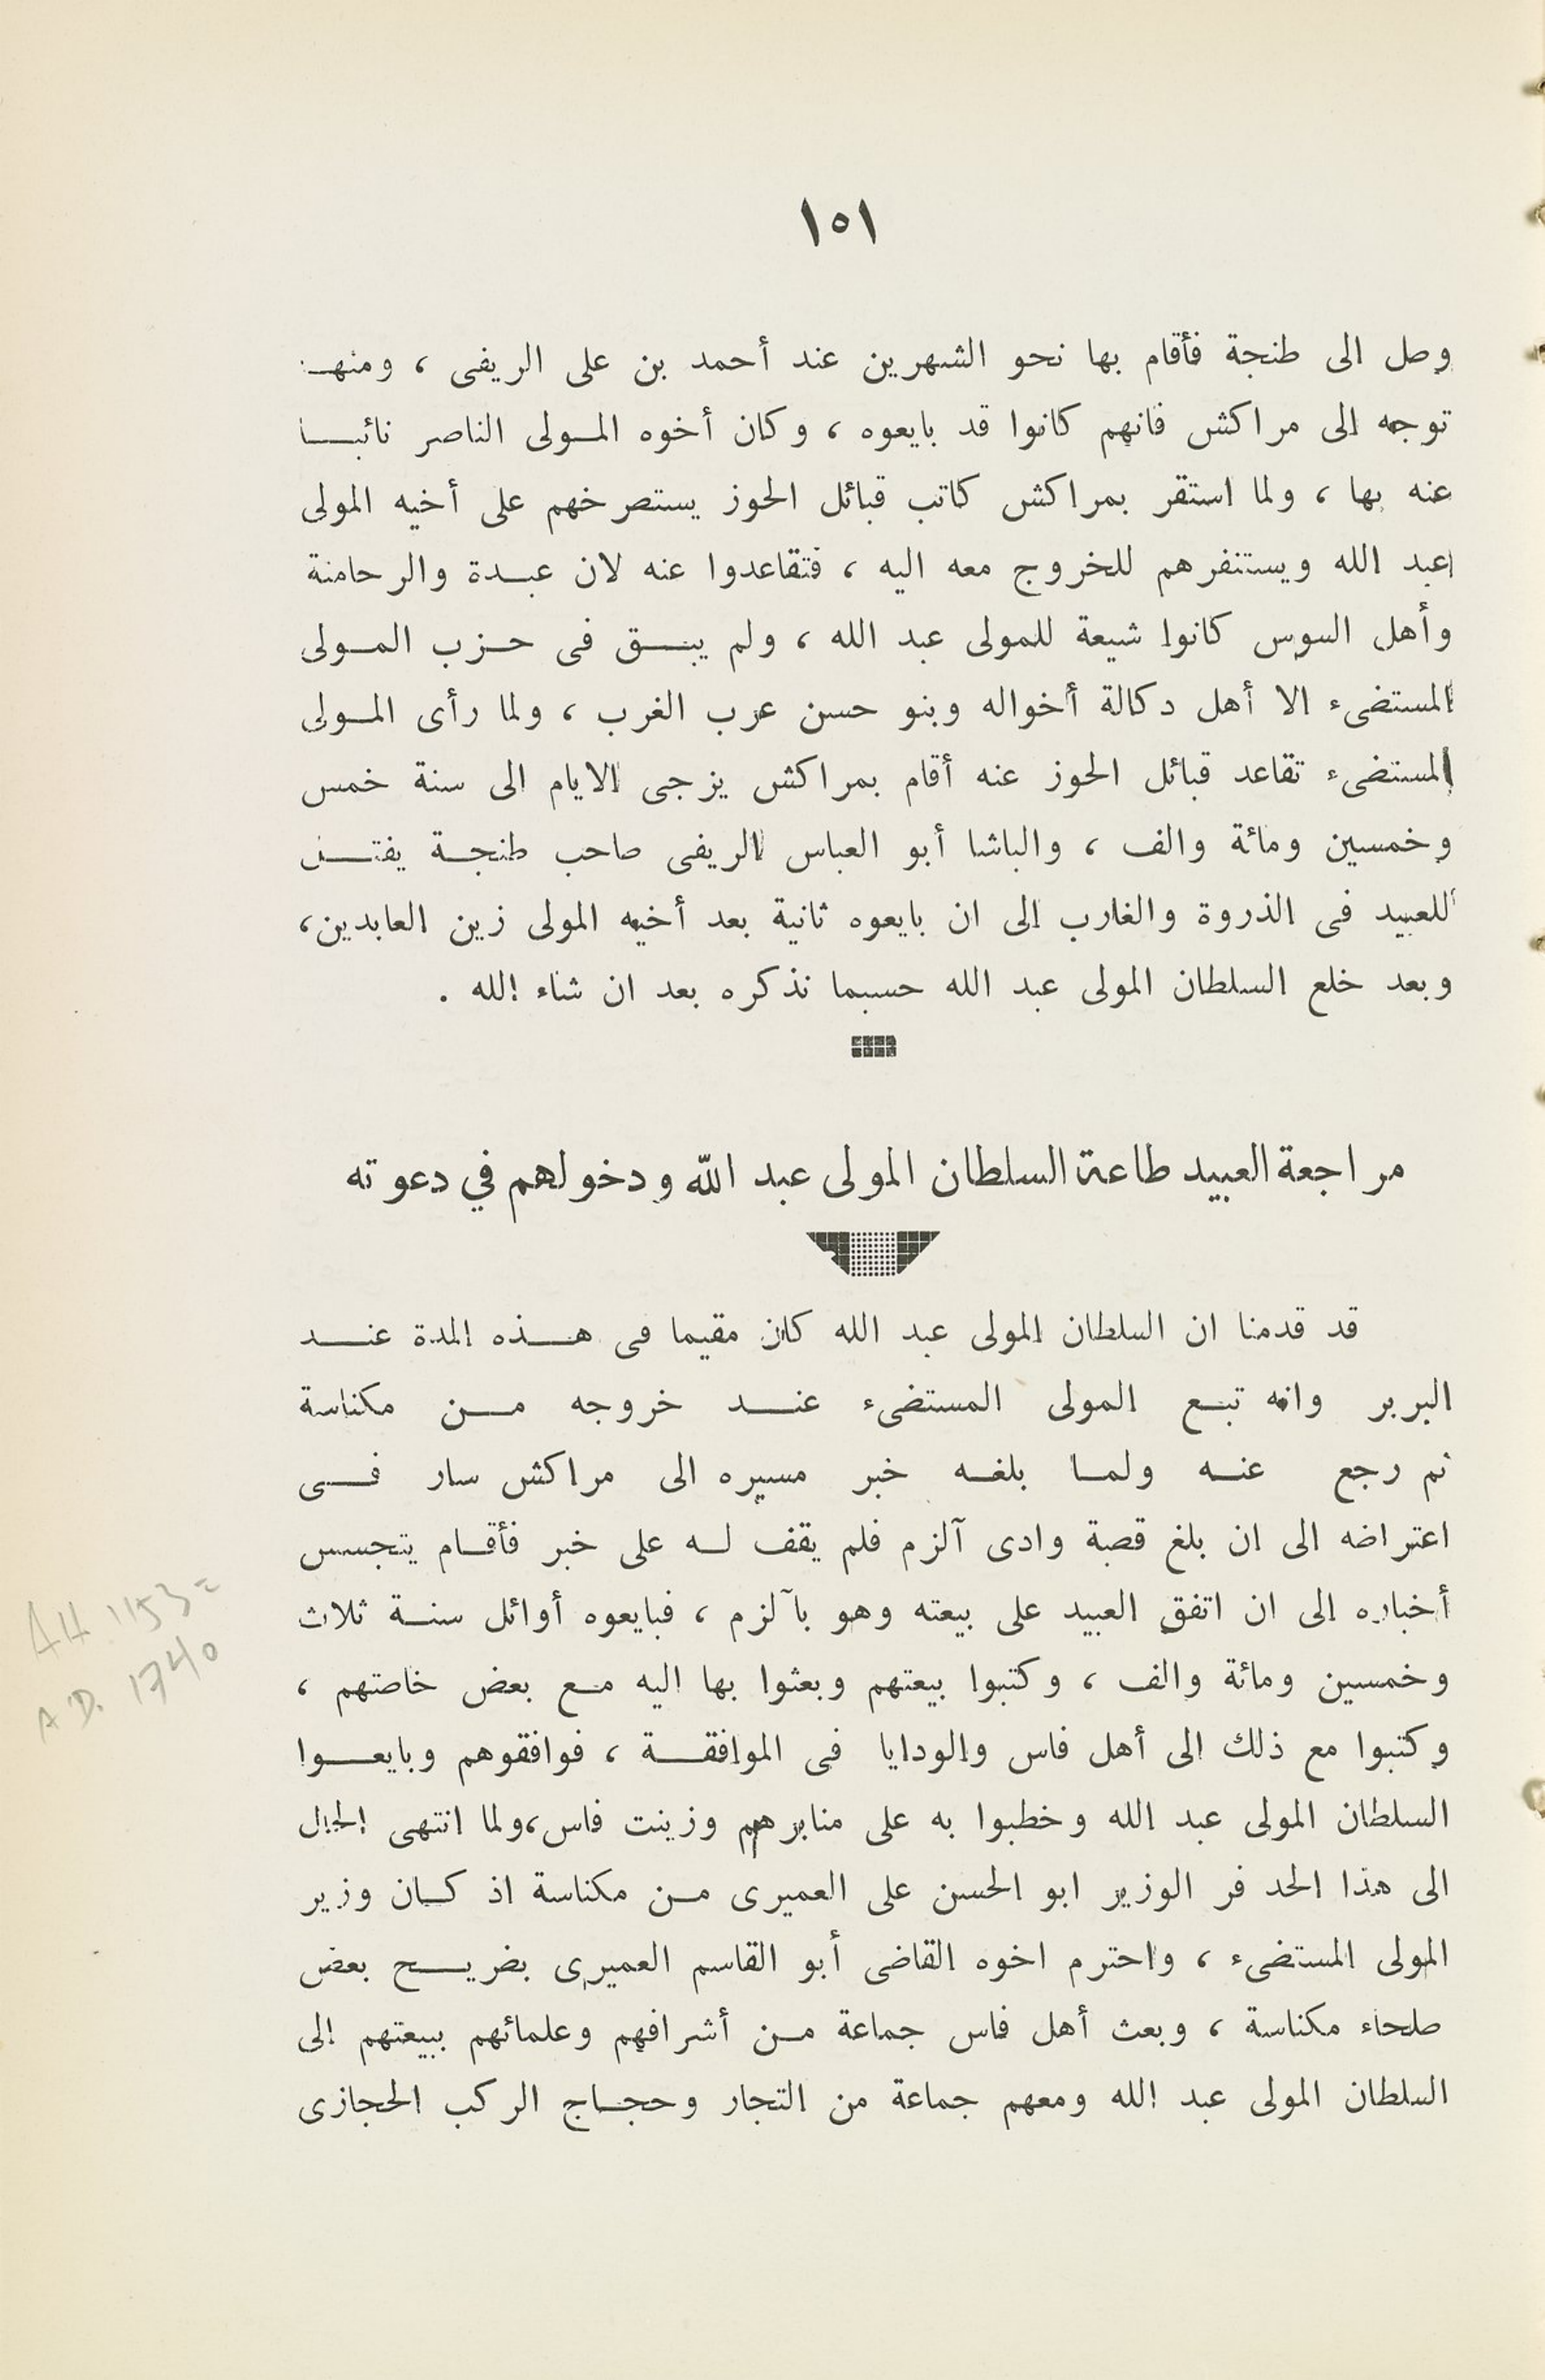 ١٥١
وصل الى طنجة فأقام بها نحو الشهرين عند أحمد بن على الريفى ، ومنهـا
توجه الى مراكش فانهم كانوا قد بايعوه ، وكان أخوه المـولى الناصر نائبـــا
عنه بها ، ولما استقر بمراكش كاتب قبائل الحوز يستصرخهم على أخيه المولى
عبد الله ويستنفرهم للخروج معه اليه ، فتقاعدوا عنه لان عبـدة والرحامنة
وأهل السوس كانوا شيعة للمولى عبد الله ، ولم يبــق فى حـزب المـولى
المستضىء الا أهل دكالة أخواله وبنو حسن عرب الغرب ، ولما رأى المـولى
المستضىء تقاعد قبائل الحوز عنه أقام بمراكش يزجى الايام الى سنة خمس
وخمسين ومائة والف ، والباشا أبو العباس الريفى صاحب طنجـة يفتــل
للعبيد فى الذروة والغارب الى ان بايعوه ثانية بعد أخيه المولى زين العابدين،
وبعد خلع السلطان المولى عبد الله حسبما نذكره بعد ان شاء الله .
مراجعة العبيد طاعة السلطان المولى عبد الله ودخولهم في دعوته
قد قدمنا ان السلطان المولى عبد الله كان مقيما فى هــذه المدة عنــد
البربر وانه تبـع المولى المستضىء عنــد خروجه مــن مكناسة
ثم رجع عنـه ولمـا بلغـه خبر مسيره الى مراكش سار فــى
اعتراضه الى ان بلغ قصبة وادى آلزم فلم يقف لـه على خبر فأقـام يتجسس
أخباره الى ان اتفق العبيد على بيعته وهو بآلزم ، فبايعوه أوائل سنـة ثلاث
وخمسين ومائة والف ، وكتبوا بيعتهم وبعثوا بها اليه مـع بعض خاصتهم ،
وكتبوا مع ذلك الى أهل فاس والودايا فى الموافقــة ، فوافقوهم وبايعــوا
السلطان المولى عبد الله وخطبوا به على منابرهم وزينت فاس،ولما انتهى الحال
الى هذا الحد فر الوزير ابو الحسن على العميرى مـن مكناسة اذ كـان وزير
المولى المستضىء ، واحترم اخوه القاضى أبو القاسم العميرى بضريــح بعض
صلحاء مكناسة ، وبعث أهل فاس جماعة مـن أشرافهم وعلمائهم ببيعتهم الى
السلطان المولى عبد الله ومعهم جماعة من التجار وحجـاج الركب الحجازى
AH. 1153 =
A.D. 1740